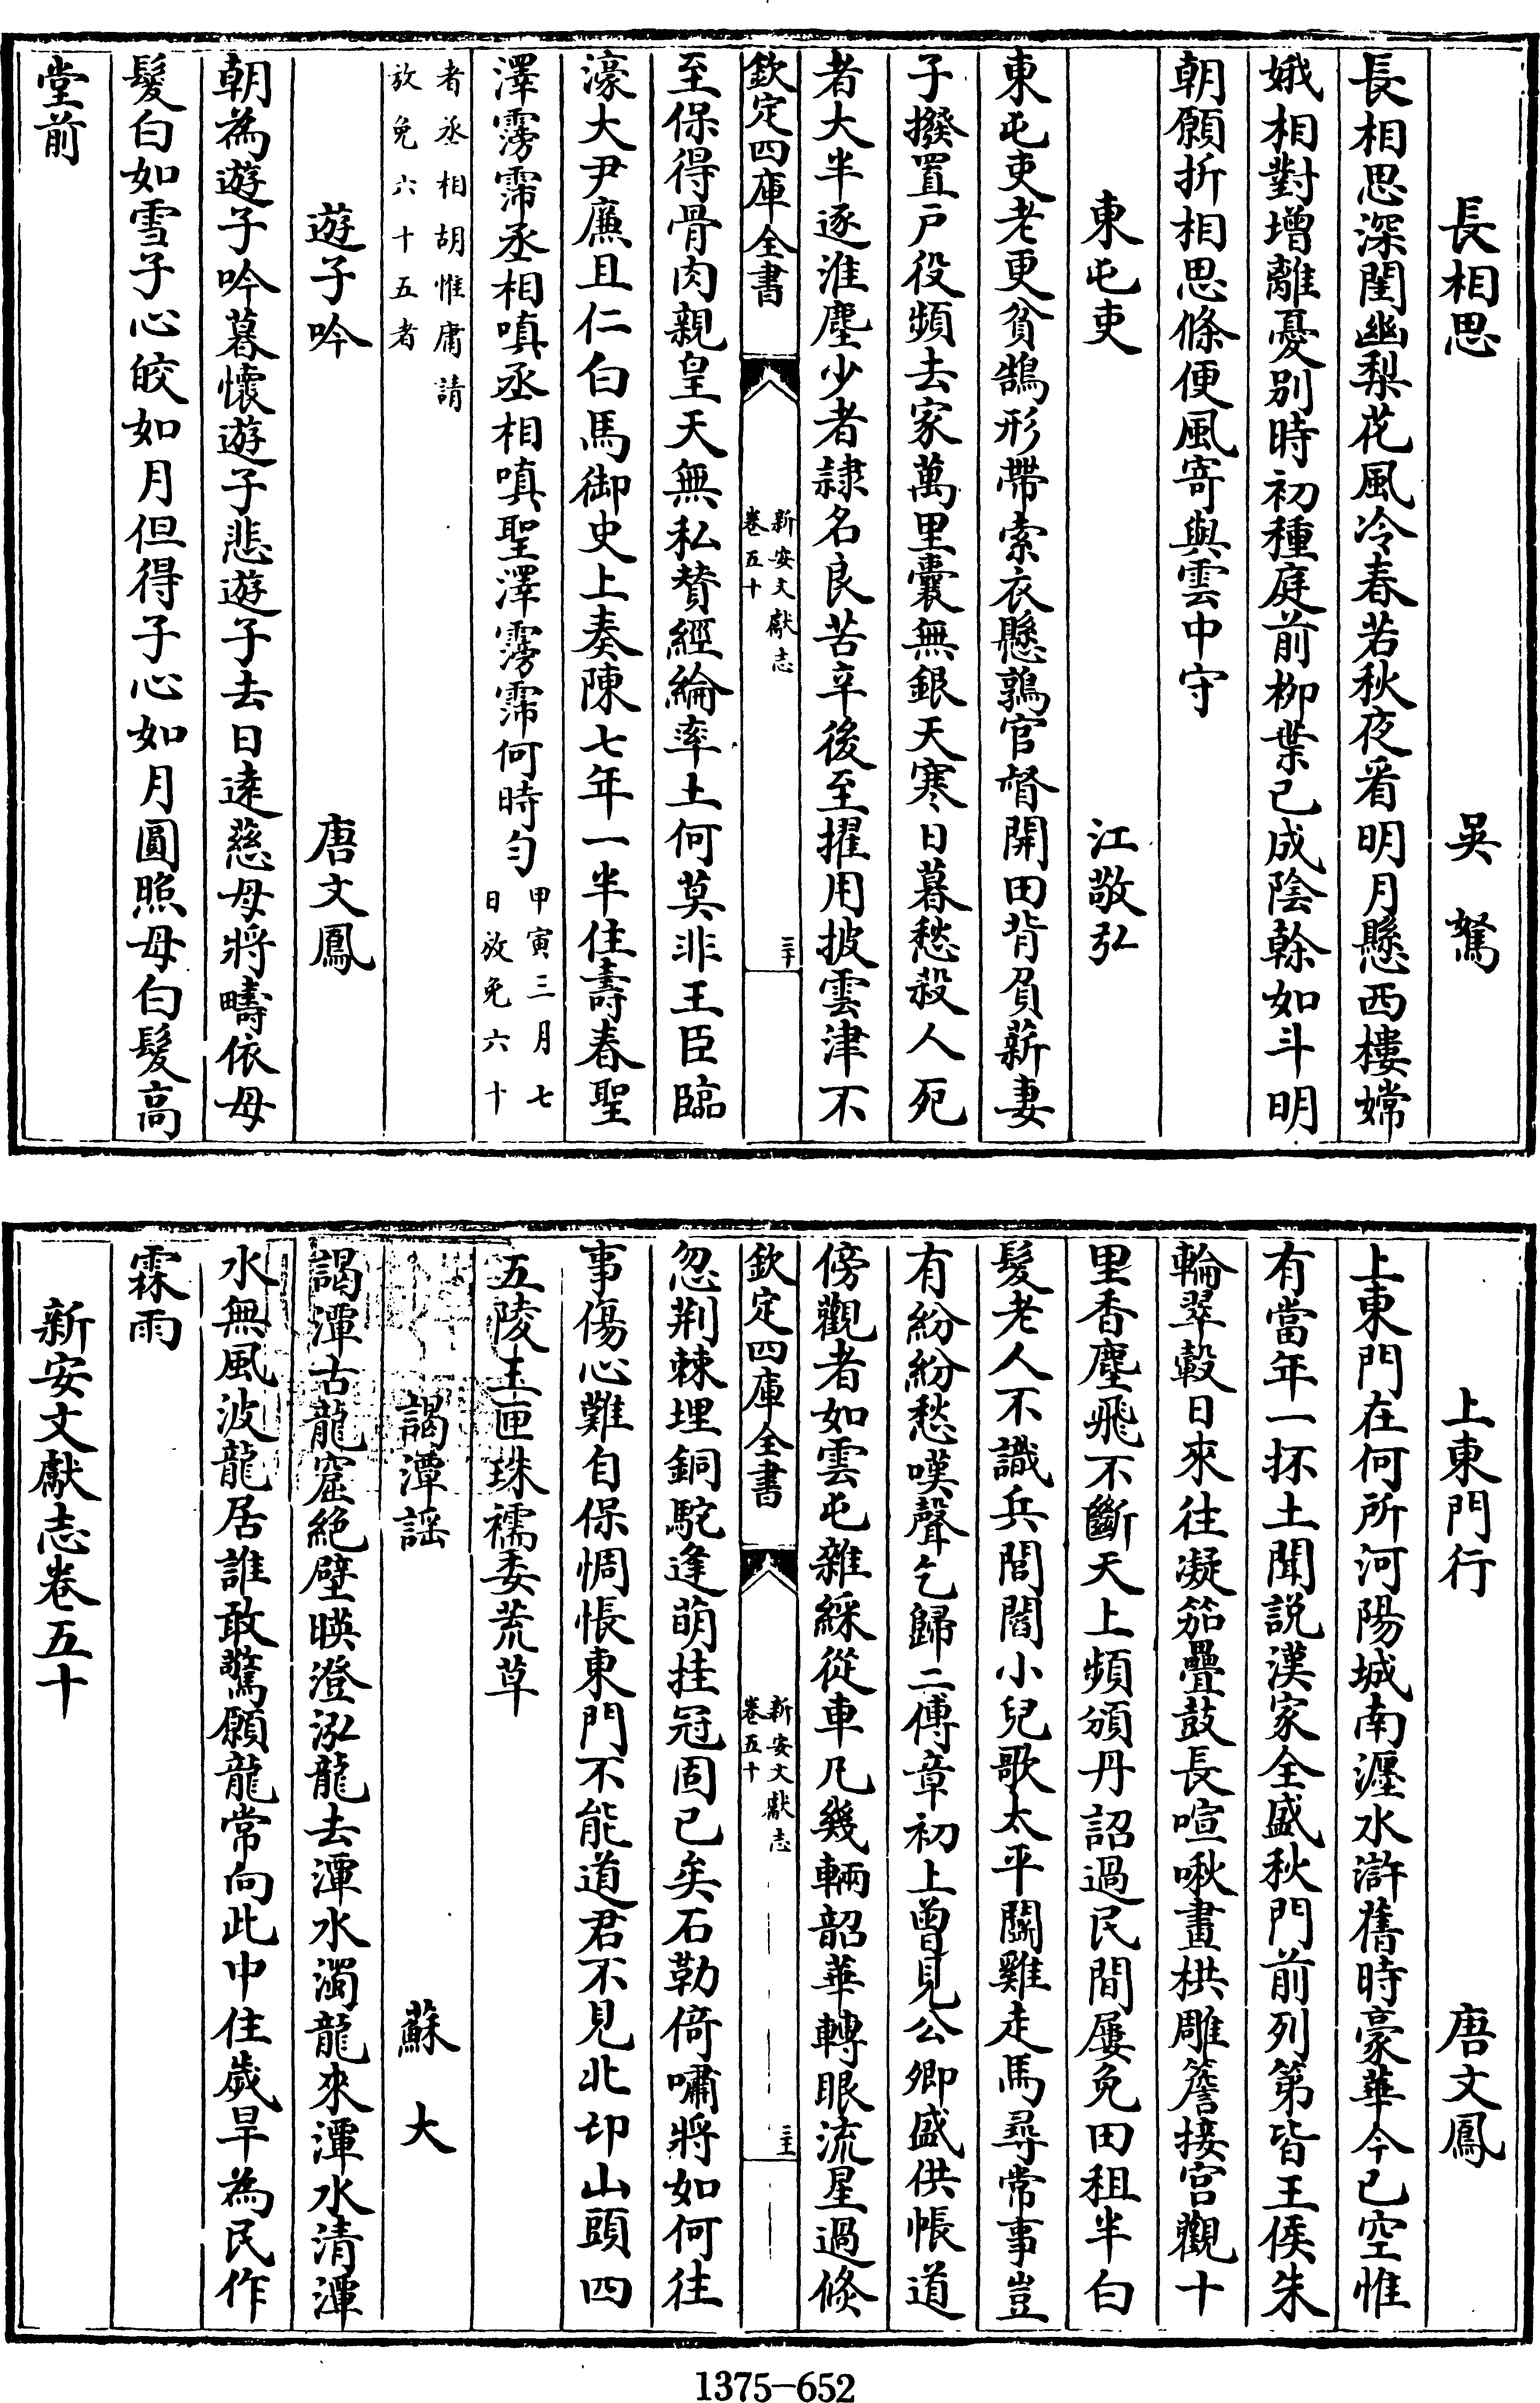 長相思　吳　駑
長相思深閨幽梨花風冷春若秋夜看明月懸西樓嫦
娥相對增離憂别時初種庭前栁葉已成陰榦如斗明
朝願折相思條便風寄與雲中守
東屯吏　江敬弘
東屯吏老更貧鵠形帶索衣懸鶉官督開田背負薪妻
子撥置戸役頻去家萬里囊無銀天寒日暮愁殺人死
者大半逐淮塵少者隷名良苦辛後至擢用披雲津不
欽定四庫全書
新安文獻志
卷五十
三十
至保得骨肉親皇天無私贊經綸率土何莫非王臣臨
濠大尹亷且仁白馬御史上奏陳七年一半住壽春聖
澤霶霈丞相嗔丞相嗔聖澤霶霈何時勻
甲寅三月七
日放免六十
者丞相胡惟庸請
放免六十五者
遊子吟　唐文鳳
朝為遊子吟暮懷遊子悲遊子去日逺慈母將疇依母
髮白如雪子心皎如月但得子心如月圓照母白髮高
堂前
上東門行　唐文鳳
上東門在何所河陽城南瀍水滸舊時豪華今已空惟
有當年一抔土聞説漢家全盛秋門前列第皆王侯朱
輪翠轂日來往凝笳疊鼓長喧啾畫栱雕簷接宫觀十
里香塵飛不斷天上頻頒丹詔過民間屢免田租半白
髮老人不識兵閭閻小兒歌太平鬭雞走馬尋常事豈
有紛紛愁嘆聲乞歸二傅章初上曽見公卿盛供帳道
傍觀者如雲屯雜綵從車凡幾輛韶華轉眼流星過倐
欽定四庫全書
新安文獻志
卷五十
三十一
忽荆棘埋銅駝逢萌挂冠固已矣石勒倚嘯將如何往
事傷心難自保惆悵東門不能道君不見北邙山頭四
五陵玉匣珠襦委荒草
謁潭謡　蘇　大
謁潭古龍窟絶壁暎澄泓龍去潭水濁龍來潭水清潭
水無風波龍居誰敢驚願龍常向此中住嵗旱為民作
霖雨
新安文獻志卷五十
1375-652